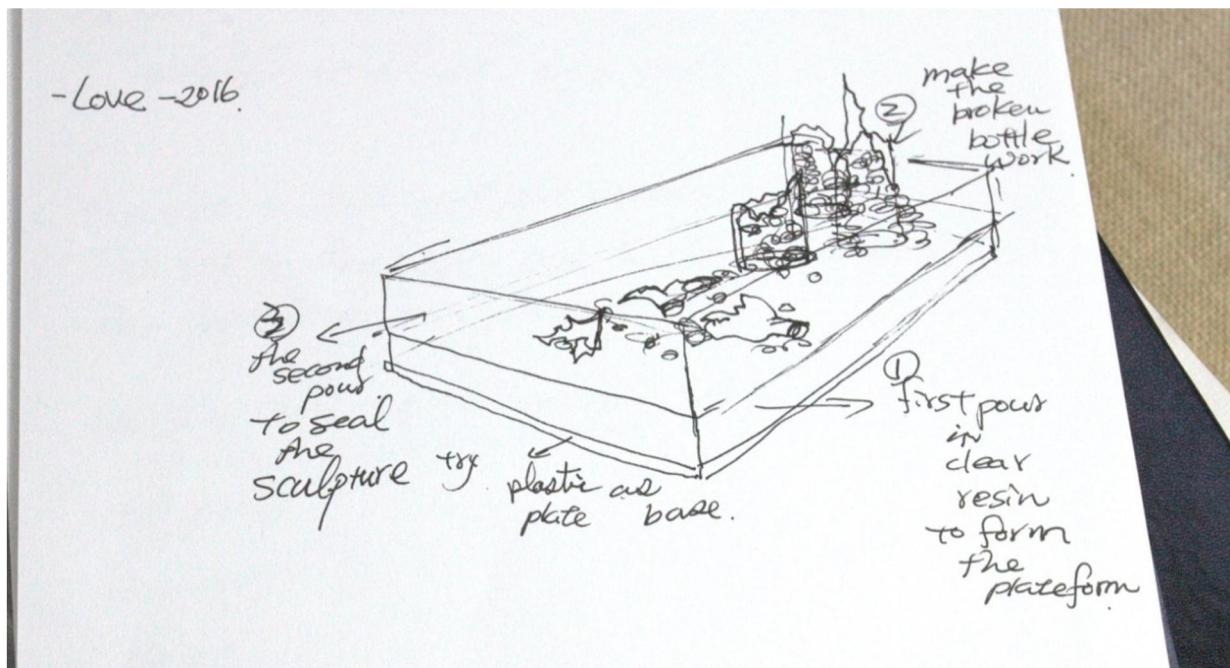 -Love -2016.
②
make
the
broken
bottle
work.
③
the
second
pour
to seal
the
sculpture
try
plastic as
plate base.
①
first pour
in
clear
resin
to form
the
plateform